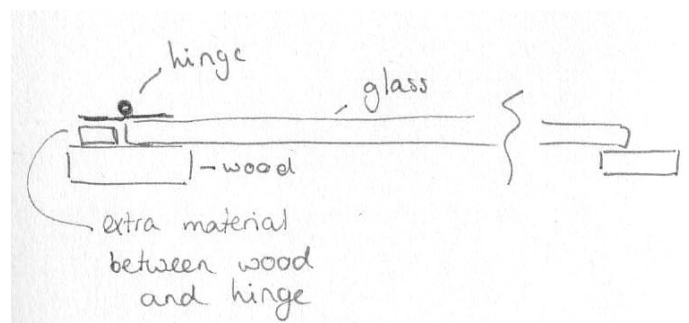 hinge
glass
wood
extra material
between wood
and hinge